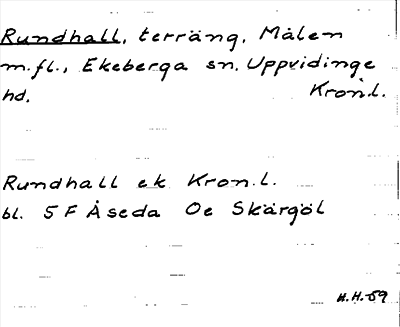 Rundhall, terräng, Målen
m.fl., Ekeberga sn. Uppvidinge
hd. Kron.l.
Rundhall ek Kron.l.
bl. 5 F Åseda Oe Skärgöl
H.H.-59